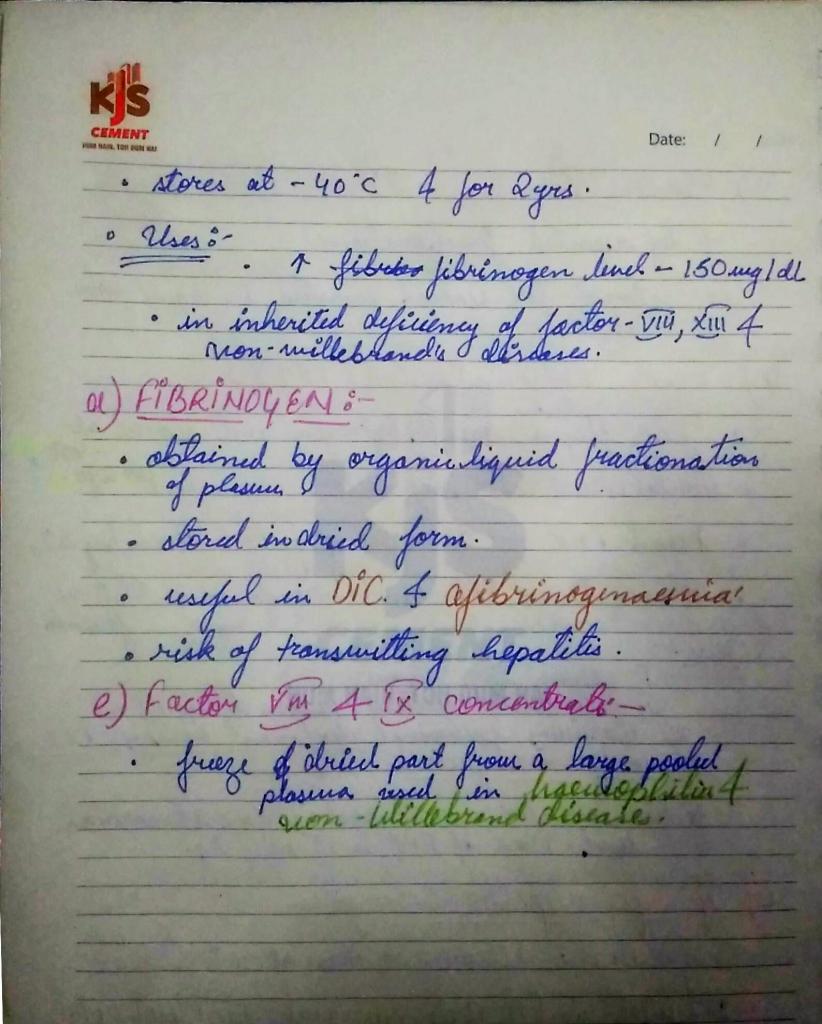 KJS
CEMENT
Date: / /
• stores at -40°C & for 2yrs.
• Uses:-
• ↑ fibrinogen level - 150mg/dl
• in inherited deficiency of factor-VIII, XIII &
von-willebrand's diseases.
d) FIBRINOGEN:-
• obtained by organic liquid fractionation
of plasma
• stored in dried form.
• useful in DIC. & afibrinogenaemia
• risk of transmitting hepatitis.
e) Factor VIII & IX concentrate:-
• freeze dried part from a large pooled
plasma used in haemophilia &
von-Willebrand diseases.